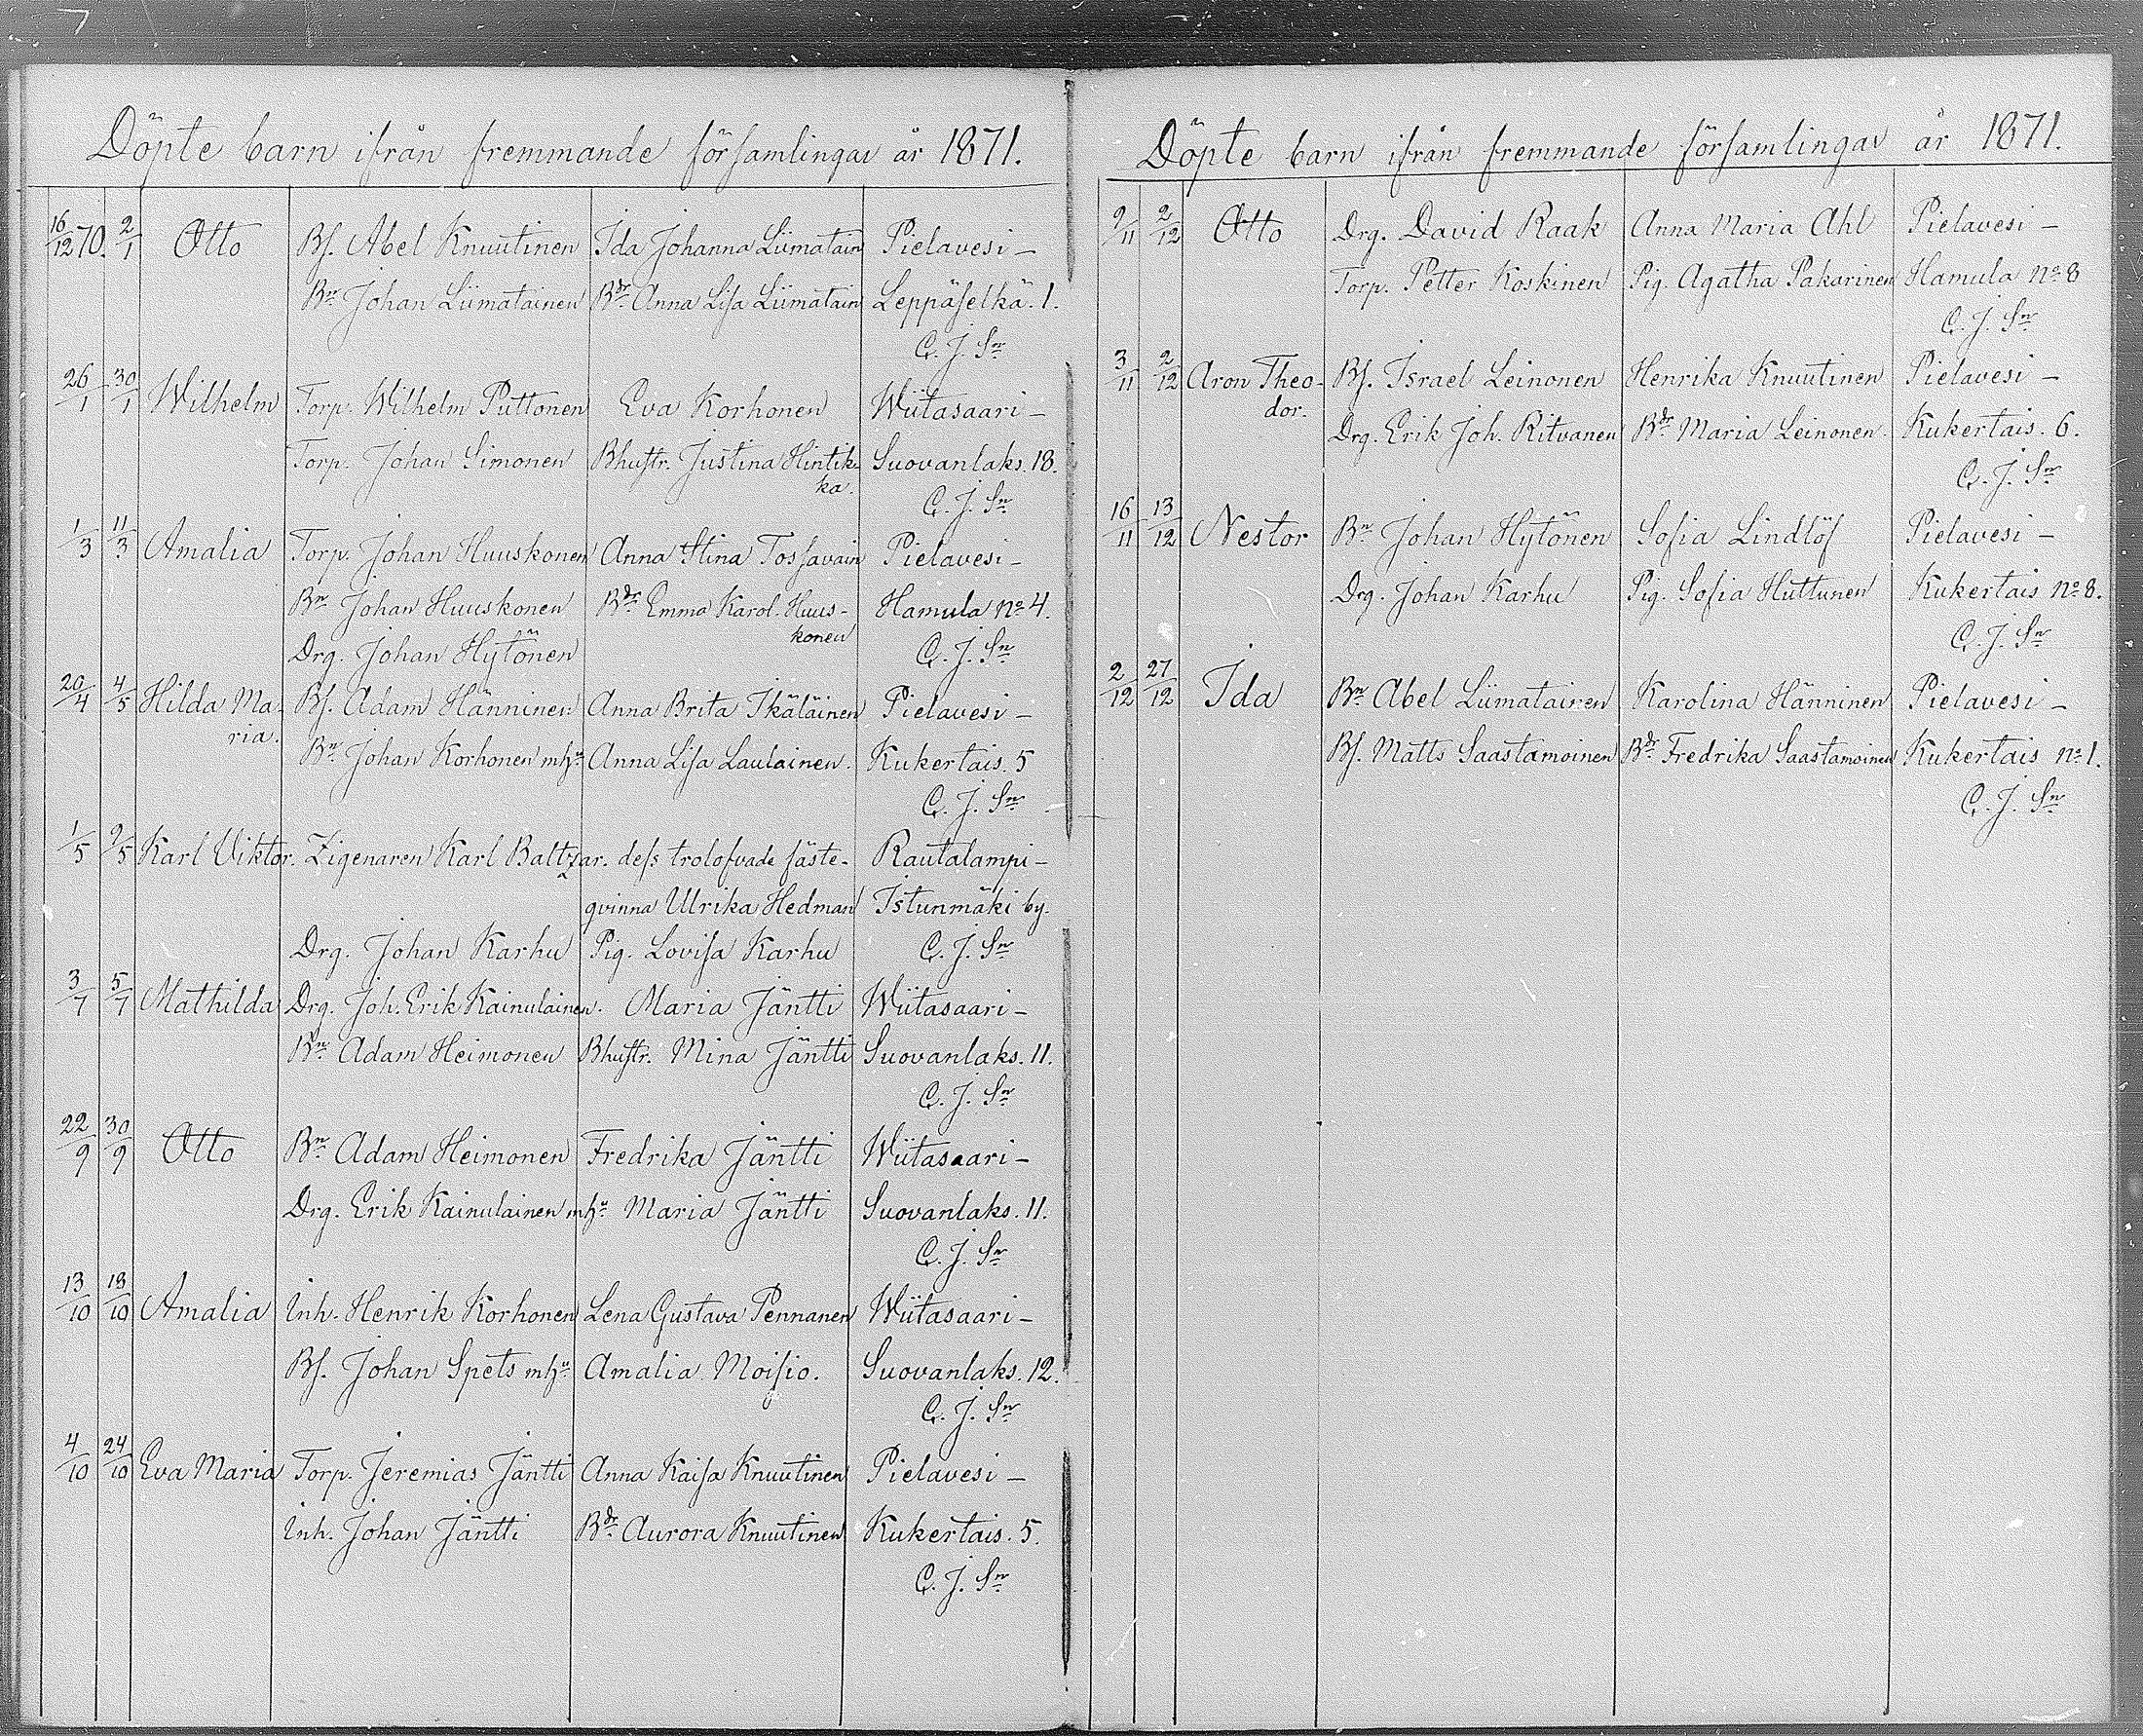 Döpte barn ifrån fremmande församlingar år 1871.
16/12 70. 2/1 Otto Bs. Abel Knuutinen Ida Johanna Liimatain Pielavesi –
Bn Johan Liimatainen Bdr Anna Lisa Liimatain Leppäselkä. 1.
C. J. Sn
26/1 30/1 Wilhelm Torp. Wilhelm Puttonen Eva Korhonen Wiitasaari –
Torp. Johan Simonen Bhustr. Justina Hintik- Suovanlaks. 18.
ka. C. J. Sn
1/3 11/3 Amalia Torp. Johan Huuskonen Anna Stina Tossavain Pielavesi –
Bn Johan Huuskonen Bdr Emma Karol. Huus- Hamula No 4.
konen
Drg. Johan Hytönen C. J. Sn
20/4 4/5 Hilda Ma- Bs. Adam Hänninen Anna Brita Ikäläinen Pielavesi –
ria. Bn Johan Korhonen mhu Anna Lisa Laulainen. Kukertais. 5
C. J. Sn
1/5 9/5 Karl Viktor. Zigenaren Karl Baltzar. dess trolofvade fäste- Rautalampi –
qvinna Ulrika Hedman Istunmäki by.
Drg. Johan Karhu Pig. Lovisa Karhu C. J. Sn
3/7 5/7 Mathilda Drg. Joh. Erik Kainulainen. Maria Jäntti Wiitasaari –
Bn Adam Heimonen Bhustr. Mina Jäntti Suovanlaks. 11.
C. J. Sn
22/9 30/9 Otto Bn Adam Heimonen Fredrika Jäntti Wiitasaari –
Drg. Erik Kainulainen mhu Maria Jäntti Suovanlaks. 11.
C. J. Sn
13/10 18/10 Amalia Inh. Henrik Korhonen Lena Gustava Pennanen Wiitasaari –
Bs. Johan Spets mhu Amalia Moisio. Suovanlaks. 12.
C. J. Sn
4/10 24/10 Eva Maria Torp. Jeremias Jäntti Anna Kaisa Knuutinen Pielavesi –
Inh. Johan Jäntti Bdr Aurora Knuutinen Kukertais. 5.
C. J. Sn
Döpte barn ifrån fremmande församlingar år 1871.
9/11 2/12 Otto Drg. David Raak Anna Maria Ahl Pielavesi –
Torp. Petter Koskinen Pig. Agatha Pakarinen Hamula No 8
C. J. Sn
3/11 2/12 Aron Theo- Bs. Israel Leinonen Henrika Knuutinen Pielavesi –
dor. Drg. Erik Joh. Ritvanen Bdr Maria Leinonen. Kukertais. 6.
C. J. Sn
16/11 13/12 Nestor Bn Johan Hytönen Sofia Lindlöf Pielavesi –
Drg. Johan Karhu Pig. Sofia Huttunen Kukertais No 8.
C. J. Sn
2/12 27/12 Ida Bn Abel Liimatainen Karolina Hänninen Pielavesi –
Bs. Matts Saastamoinen Bdr Fredrika Saastamoinen Kukertais No 1.
C. J. Sn